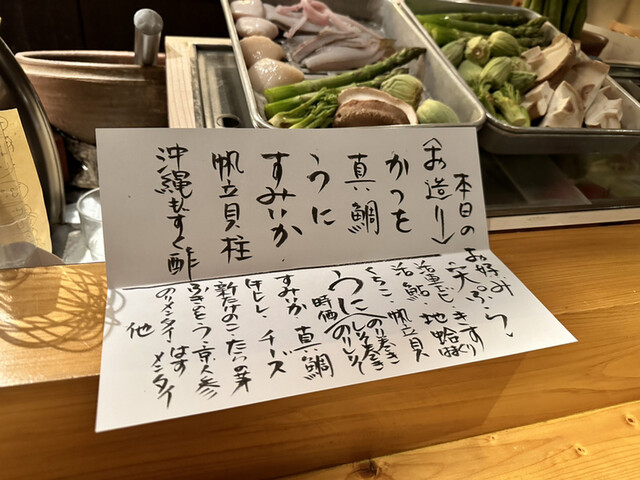 本日の
〈お造り〉
かつを
真鯛
うに
すみいか
帆立貝柱
沖縄もずく酢
お好み
〝天ぷら〟
活車えび 地蛤
活鮎 帆立貝
くちこ
のり巻き
しそ巻き
うに
時価
すみいか 真鯛
チーズ
新たけのこ たらの芽
ふきのとう 京人参
のりメンタイ はすメンタイ
他